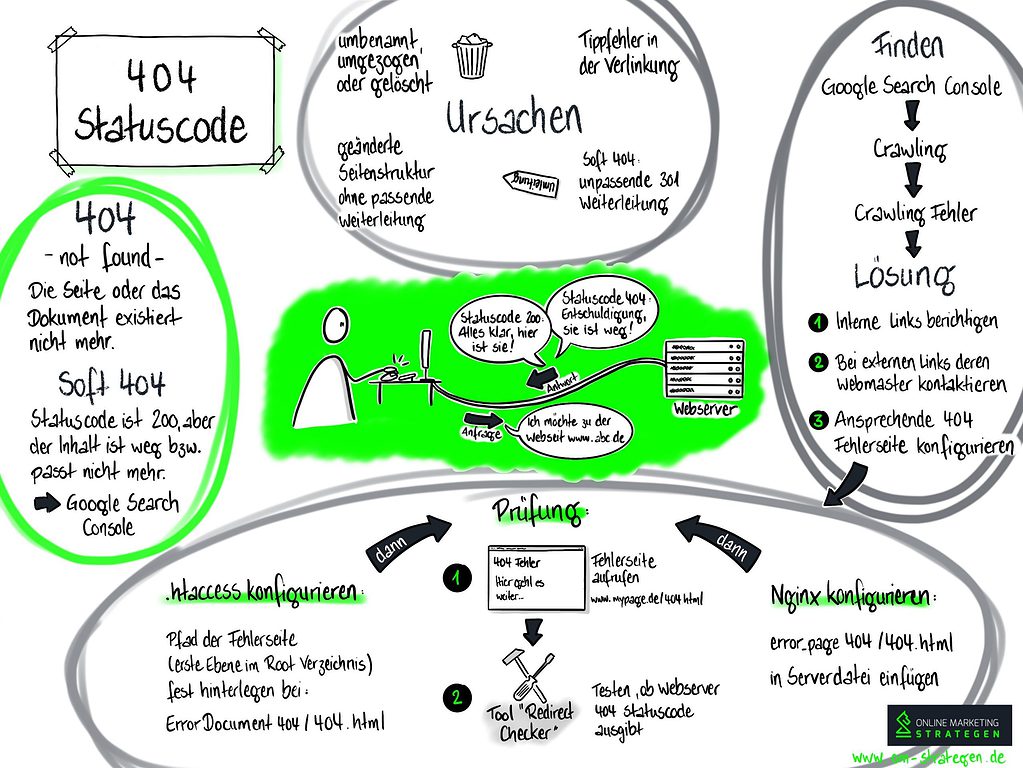 404
Statuscode
umbenannt,
umgezogen
oder gelöscht
Tippfehler in
der Verlinkung
Ursachen
geänderte
Seitenstruktur
ohne passende
Weiterleitung
Umleitung
Soft 404:
unpassende 301
Weiterleitung
Finden
Google Search Console
Crawling
Crawling Fehler
Lösung
1 Interne Links berichtigen
2 Bei externen Links deren
Webmaster kontaktieren
3 Ansprechende 404
Fehlerseite konfigurieren
404
- not found -
Die Seite oder das
Dokument existiert
nicht mehr.
Soft 404
Statuscode ist 200, aber
der Inhalt ist weg bzw.
passt nicht mehr.
Google Search
Console
Statuscode 200:
Alles klar, hier
ist sie!
Statuscode 404:
Entschuldigung,
sie ist weg!
Antwort
Anfrage
Ich möchte zu der
Webseit www.abc.de
Webserver
Prüfung:
dann
dann
.htaccess konfigurieren:
Pfad der Fehlerseite
(erste Ebene im Root Verzeichnis)
fest hinterlegen bei:
ErrorDocument 404 / 404.html
1
404 Fehler
Hier geht es
weiter...
Fehlerseite
aufrufen
www.mypage.de/404.html
2
Tool "Redirect
Checker"
Testen, ob Webserver
404 Statuscode
ausgibt
Nginx konfigurieren:
error_page 404 /404.html
in Serverdatei einfügen
ONLINE MARKETING
STRATEGEN
www.om-strategen.de